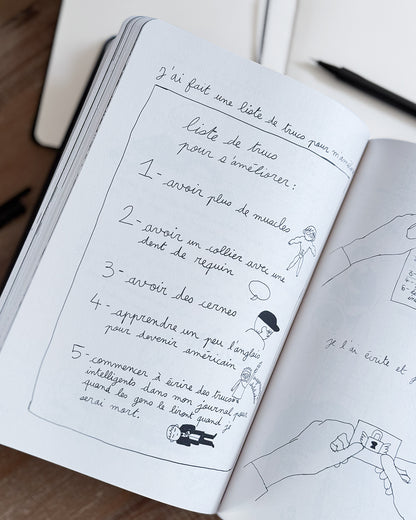 J'ai fait une liste de trucs pour m'améliorer
liste de trucs
pour s'améliorer:
1- avoir plus de muscles
2- avoir un collier avec une
dent de requin
3- avoir des cernes
4- apprendre un peu l'anglais
pour devenir américain
5- commencer à écrire des trucs
intelligents dans mon journal pour
quand les gens le liront quand je
serai mort.
je l'ai écrite et